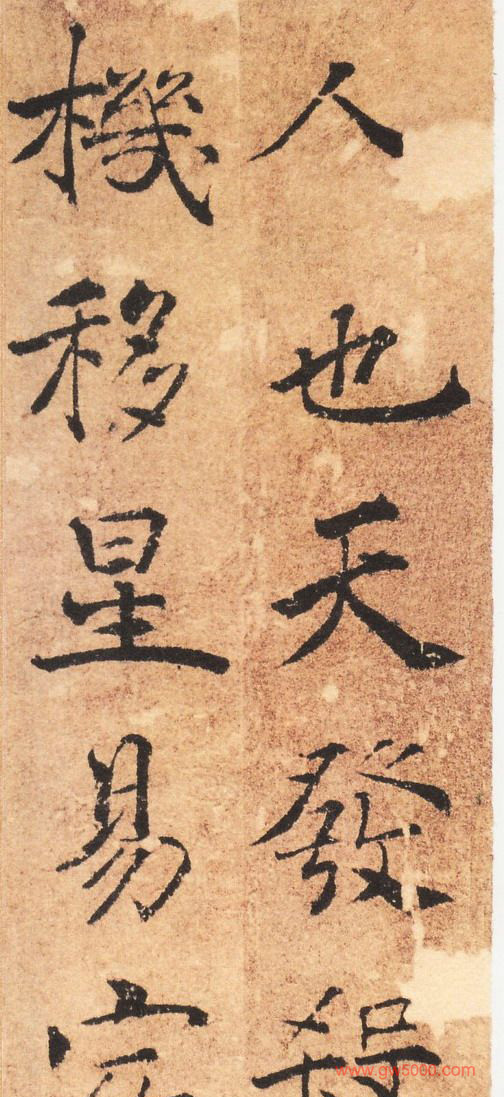 人也天發殺
機移星易宿
www.gw5000.com